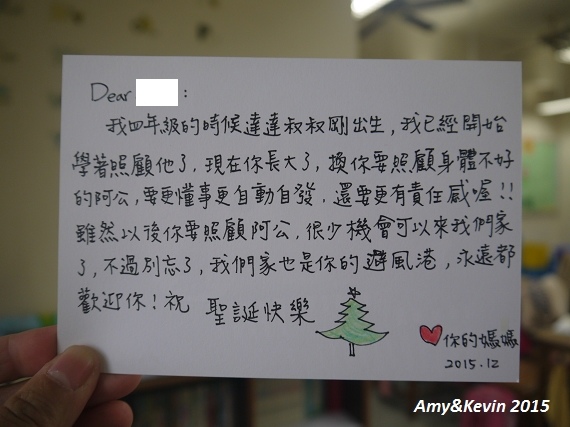 Dear :
我四年級的時候達達叔叔剛出生，我已經開始
學著照顧他了，現在你長大了，換你要照顧身體不好
的阿公，要更懂事更自動自發，還要更有責任感喔！！
雖然以後你要照顧阿公，很少機會可以來我們家
了，不過別忘了，我們家也是你的避風港，永遠都
歡迎你！祝 聖誕快樂
你的媽媽
2015.12
Amy&Kevin 2015